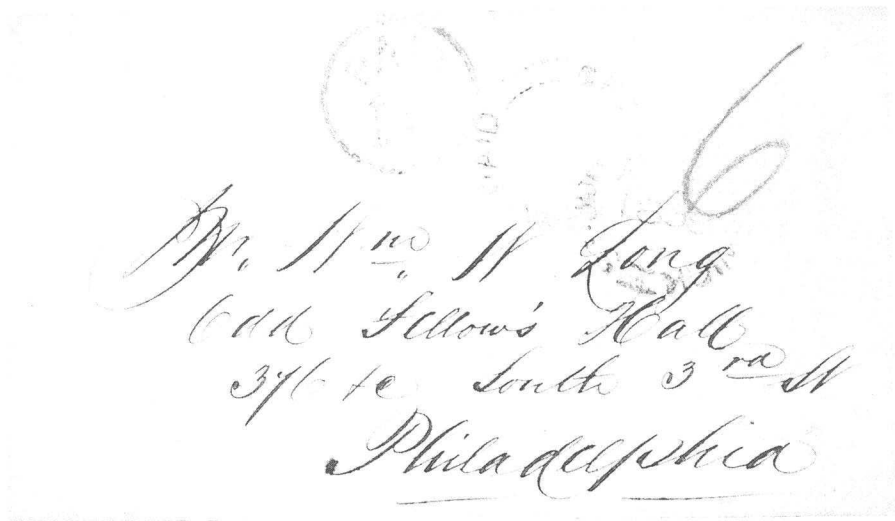 6
PAID
Mr. Wm. W Long
Odd Fellow's Hall
South 3rd St
Philadelphia